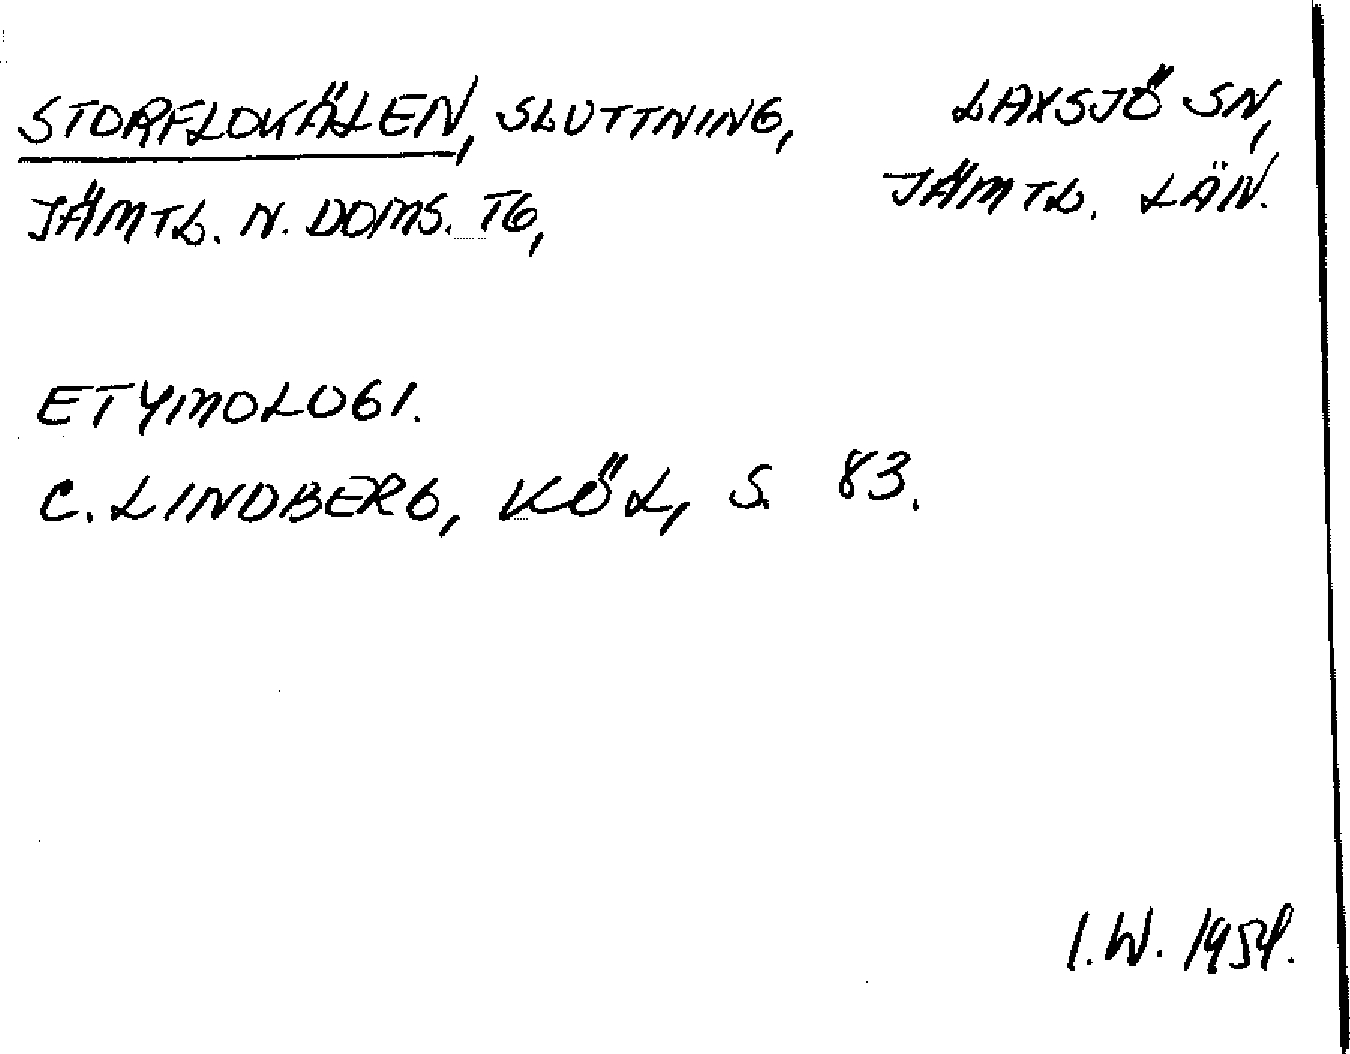 STORFLOKÄLEN, SLUTTNING,
LAXSJÖ SN,
JÄMTL. N. DOMS. TG,
JÄMTL. LÄN.
ETYMOLOGI.
C. LINDBERG, KÖL, S. 83.
I. W.